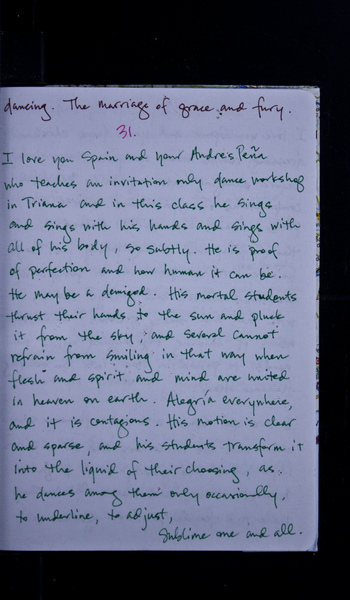 dancing. The marriage of grace and fury.
31.
I love you Spain and your Andres Peña
who teaches an invitation only dance workshop
in Triana and in this class he sings
and sings with his hands and sings with
all of his body, so subtly. He is proof
of perfection and how human it can be.
He may be a demigod. His mortal students
thrust their hands to the sun and pluck
it from the sky, and several cannot
refrain from smiling in that way when
flesh and spirit and mind are united
in heaven on earth. Alegría everywhere,
and it is contagious. His motion is clear
and sparse, and his students transform it
into the liquid of their choosing, as
he dances among them only occasionally,
to underline, to adjust,
Sublime one and all.